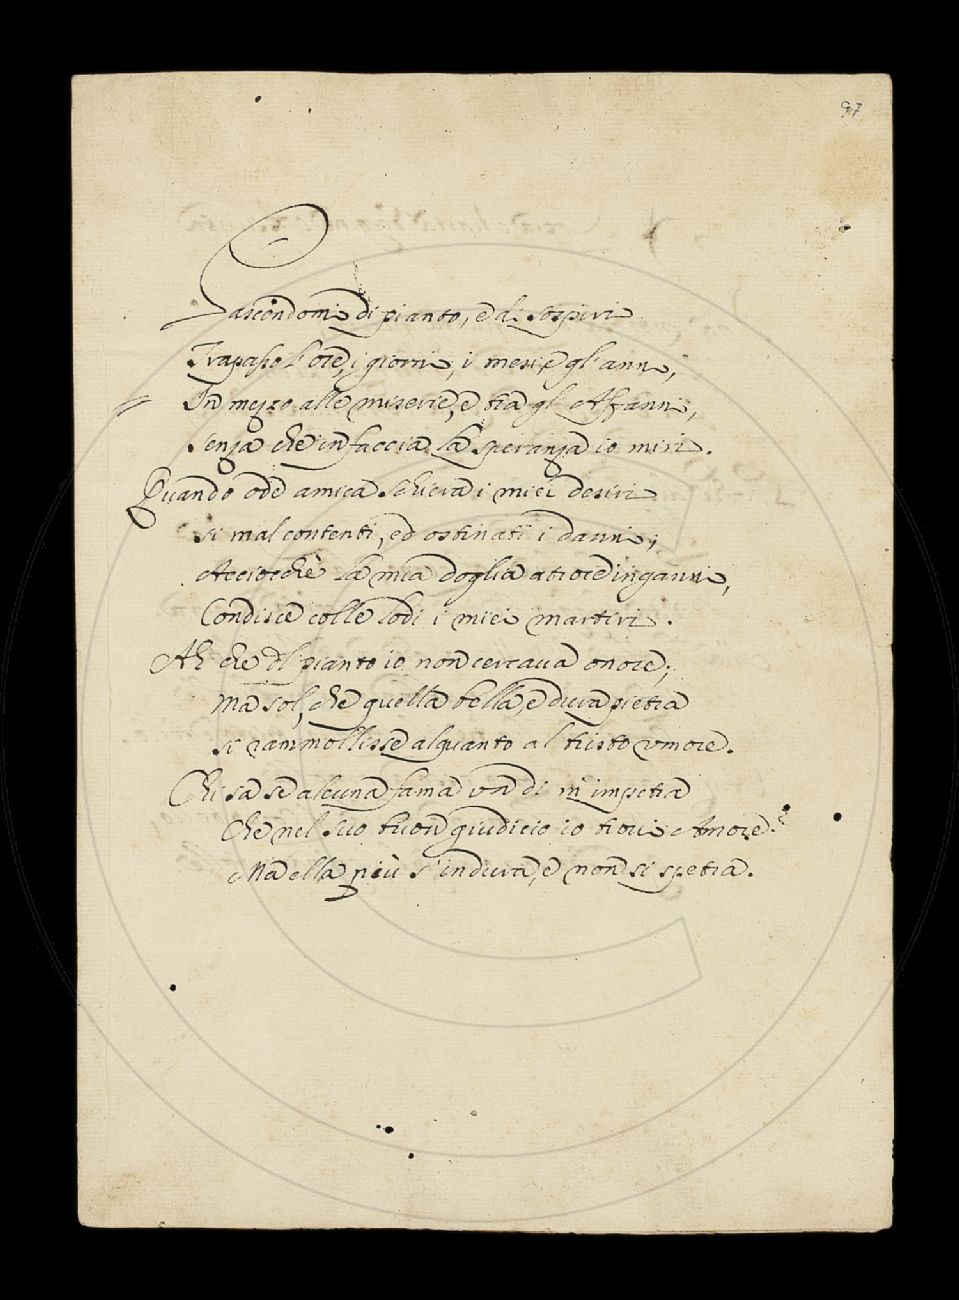 97
Pascendomi di pianto, e di sospiri
Trapasso l'ore, i giorni, i mesi, e gl'anni,
In mezzo alle miserie, e tra gl'Affanni,
Senza che in faccia la speranza io miri.
Quando ode amica schiera i miei desiri
si mal contenti, ed ostinati i danni;
Acciocchè la mia doglia atroce inganni,
Condisce colle lodi i miei martiri.
Ah che dl pianto io non cercaua onore;
Ma sol, che quella bella, e dura pietra
si rammollisse alquanto al tristo vmore.
Chi sa se alcuna fama vn di m'impetra
Che nel suo buon giudicio io troui Amore?
Ma ella più s'indura, e non si spetra.